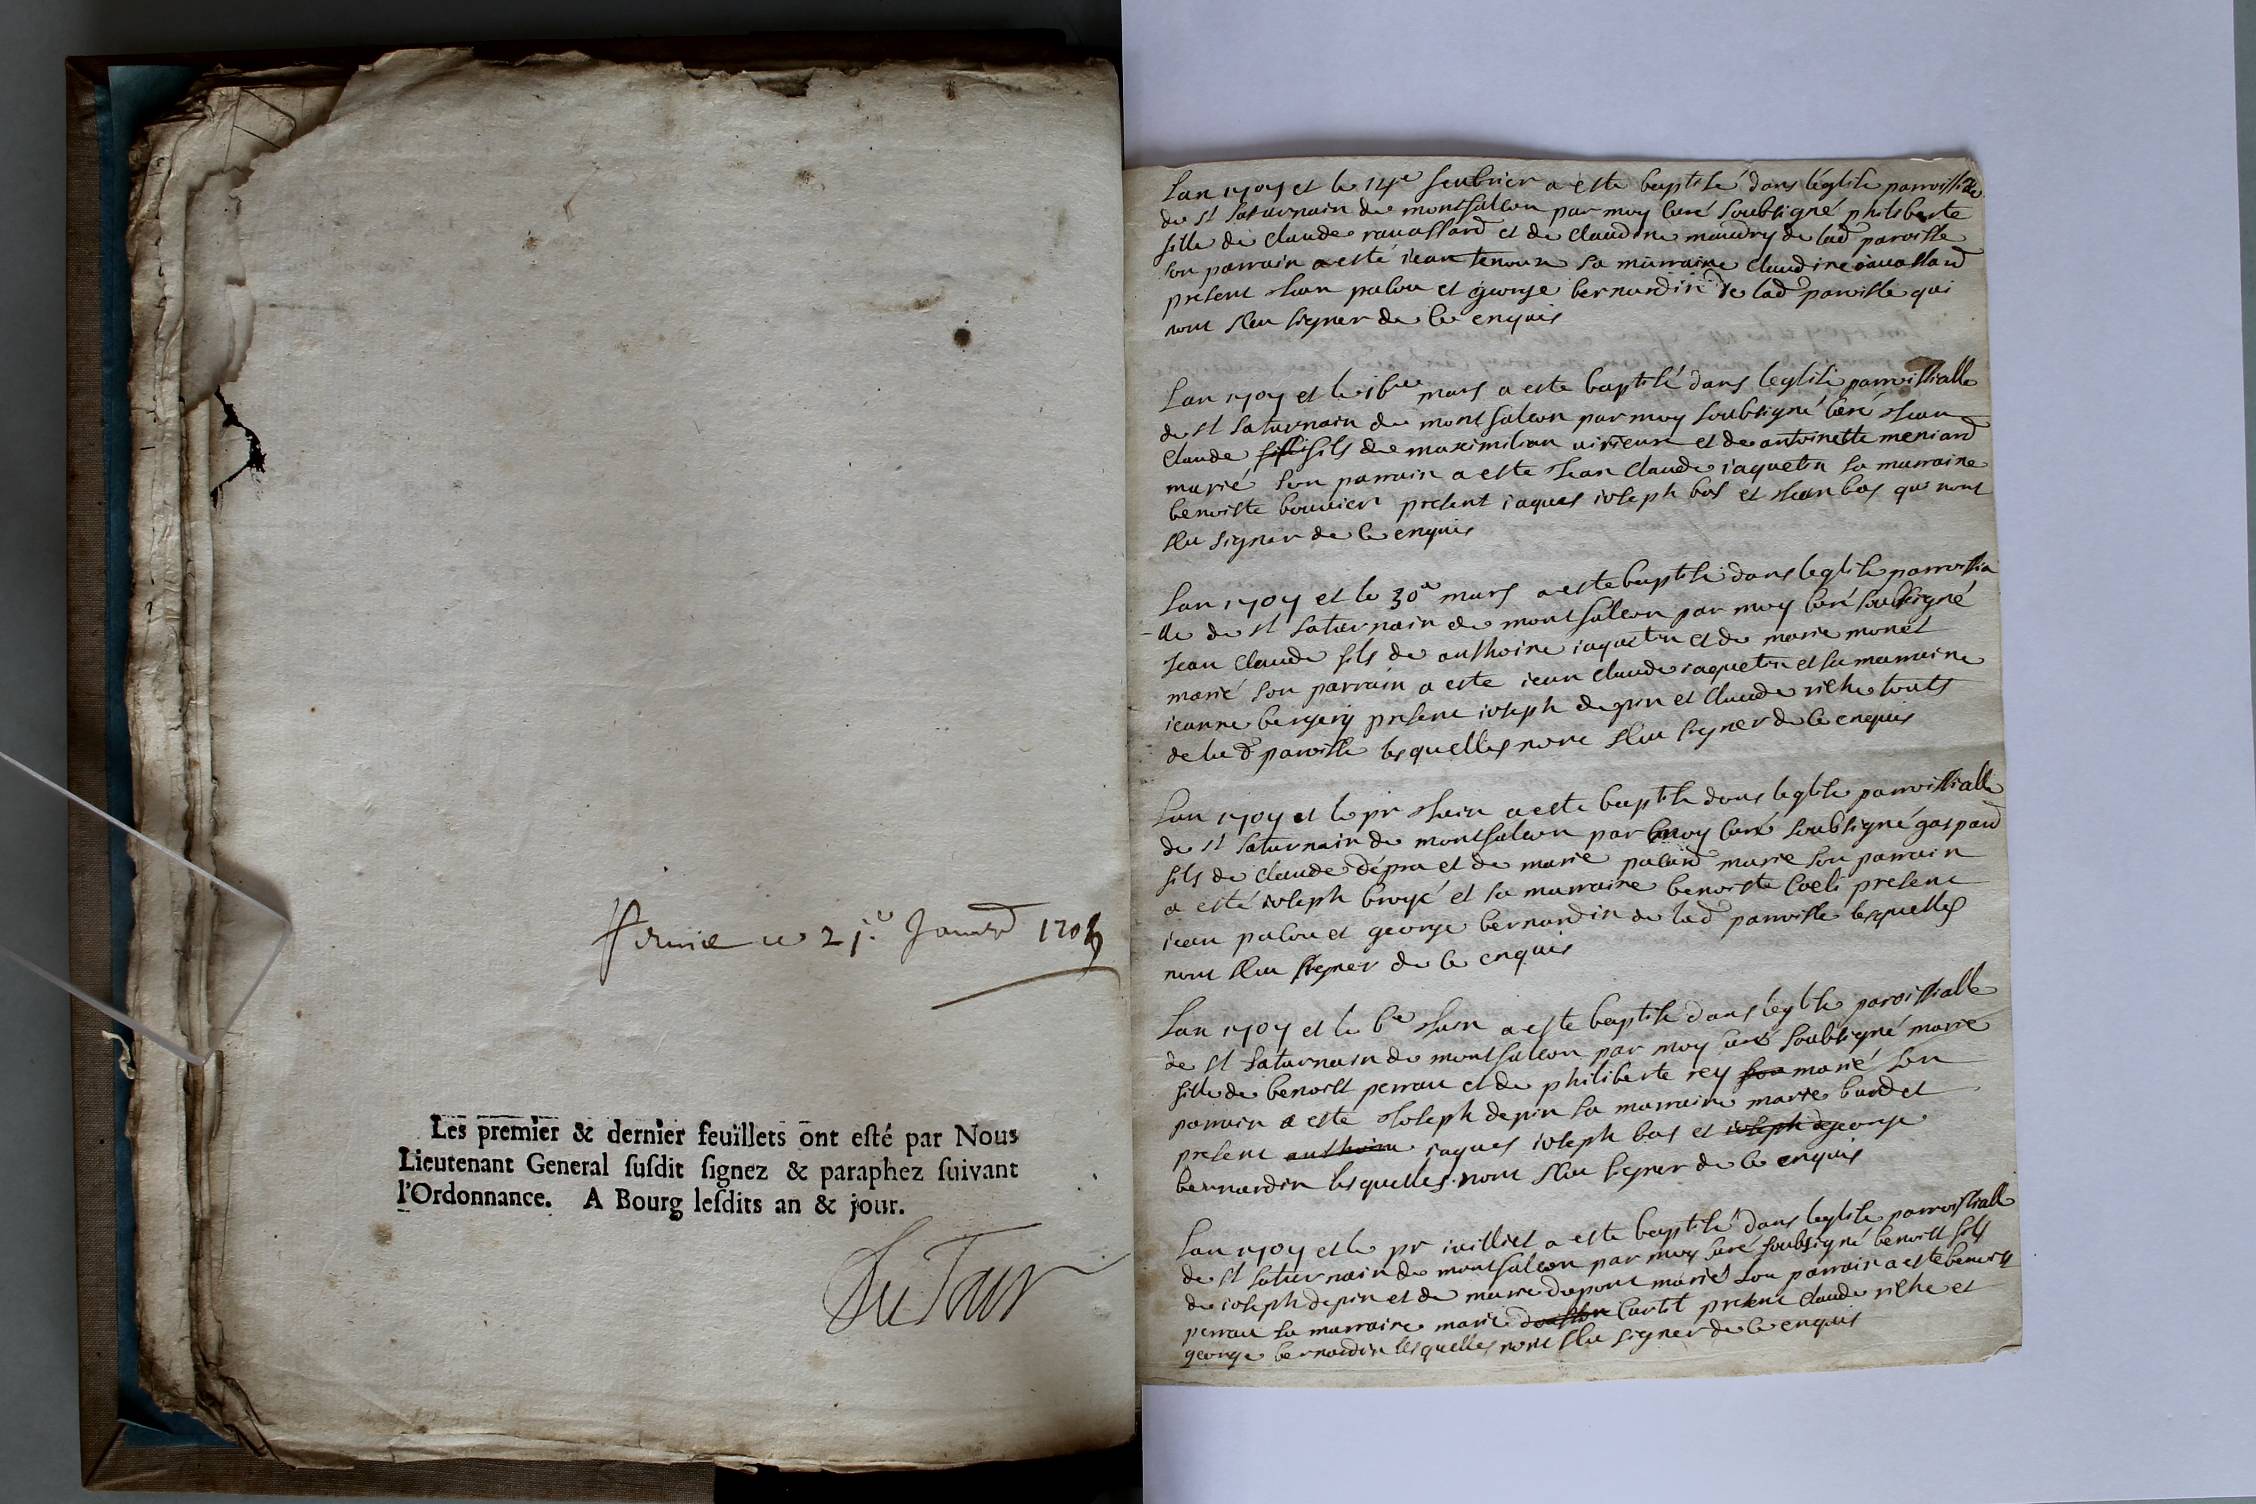 le 21.e 1709
Les premier & dernier feuillets ont esté par Nous
Lieutenant General susdit signez & paraphez suivant
l'Ordonnance. A Bourg lesdits an & jour.
Lan 1709 et le 14e feubrier a este baptisé dans léglise parroissille
de st saturnain de montfalcon par moy curé soubsigné philiberte
fille de claude rauassard et de claudine maudry de lad parroisse
son parrain a esté iean tenoux sa marraine claudine rauassard
présent Jean palou et george bernardin de lad parroisse qui
nont sceu signer de ce enquis
Lan 1709 et le mars a este baptisé dans leglise parroissialle
de st saturnain de montfalcon par moy soubsigné curé Jean
claude fils de maximilian et de antoinette meniard
marié son parrain a este Jean claude iaquetin sa marraine
benoiste bouuier présent iaques ioseph bas et Jean bas qui nont
sceu signer de ce enquis
Lan 1709 et le 30e mars a este baptisé dans leglise parroissia
-lle de st saturnain de montfalcon par moy curé soubsigné
Jean claude fils de anthoine iaquetin et de marie monet
marié son parrain a este iean claude iaquetin et sa marraine
ieanne présent ioseph depin et claude riche touts
de lad parroisse lesquelles nont sceu signer de ce enquis
Lan 1709 et le pr Juin a este baptisé dans leglise parroissialle
de st saturnain de montfalcon par moy curé soubsigné gaspard
fils de claude dépra et de marie palard marié son parrain
a esté ioseph broyé et sa marraine benoiste présent
iean palou et george bernardin de lad parroisse lesquelles
nont sceu signer de ce enquis
Lan 1709 et le 6e Juin a este baptisé dans leglise paroissialle
de st saturnain de montfalcon par moy curé soubsigné marie
fille de benoist perrau et de philiberte rey marié son
parrain a este Joseph depin sa marraine marie burdet
présent iaques ioseph bas et george
bernardin lesquelles nont sceu signer de ce enquis
Lan 1709 et le pr iuilliet a este baptisé dans leglise parroissialle
de st saturnain de montfalcon par moy curé soubsigné benoist fils
de ioseph depin et de marie dupont mariés son parrain a este benoist
perrau sa marraine marie curtet présent claude riche et
george bernardin lesquelles nont sceu signer de ce enquis